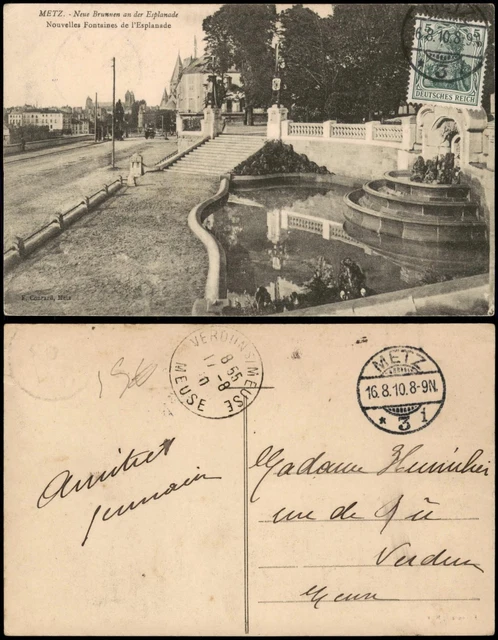 METZ. - Neue Brunnen an der Esplanade
Nouvelles Fontaines de l'Esplanade
16.8.10.8-9N
3
DEUTSCHES REICH
E. Conrard, Metz
VERDUN S/MEUSE
8 55
17 -8
10
MEUSE
METZ
16.8.10.8-9N.
* 3 i
Amitiés
Germain
Madame
rue de Rû
Verdun
Meuse